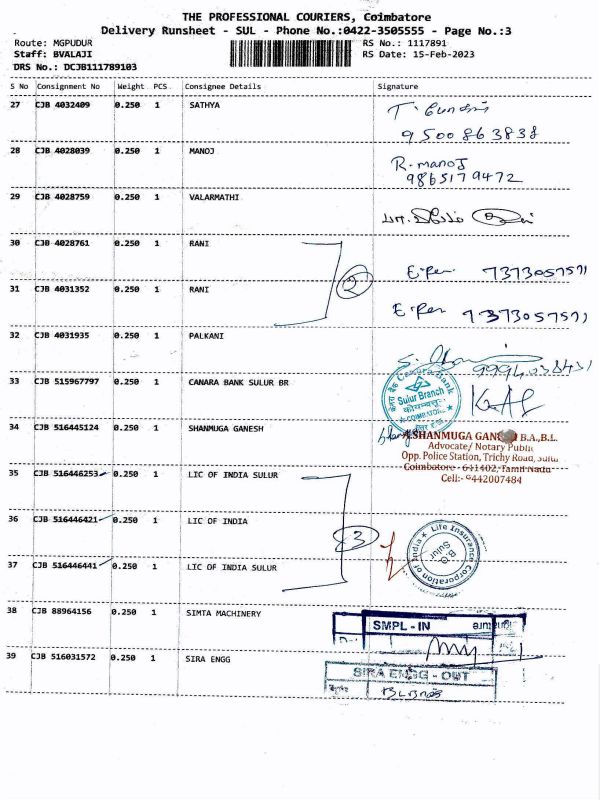 THE PROFESSIONAL COURIERS, Coimbatore
Delivery Runsheet - SUL - Phone No.:0422-3505555 - Page No.:3
Route: MGPUDUR RS No.: 1117891
Staff: BVALAJI RS Date: 15-Feb-2023
DRS No.: DCJB111789103
S No Consignment No Weight PCS Consignee Details Signature
27 CJB 4032409 0.250 1 SATHYA
9500863838
28 CJB 4028039 0.250 1 MANOJ R. manoj
9865179472
29 CJB 4028759 0.250 1 VALARMATHI
30 CJB 4028761 0.250 1 RANI 7373057571
2
31 CJB 4031352 0.250 1 RANI 7373057571
32 CJB 4031935 0.250 1 PALKANI
33 CJB 515967797 0.250 1 CANARA BANK SULUR BR
Canara Bank
Sulur Branch
COIMBATORE
34 CJB 516445124 0.250 1 SHANMUGA GANESH
A.SHANMUGA GANESH B.A.,B.L.
Advocate/ Notary Public
Opp. Police Station, Trichy Road, Sulur
Coimbatore - 641402, Tamil Nadu
Cell:- 9442007484
35 CJB 516446253 0.250 1 LIC OF INDIA SULUR
36 CJB 516446421 0.250 1 LIC OF INDIA
3
Life Insurance Corporation of India
B.O.
Sulur
37 CJB 516446441 0.250 1 LIC OF INDIA SULUR
38 CJB 88964156 0.250 1 SIMTA MACHINERY
SMPL - IN
39 CJB 516031572 0.250 1 SIRA ENGG
SIRA ENGG - OUT